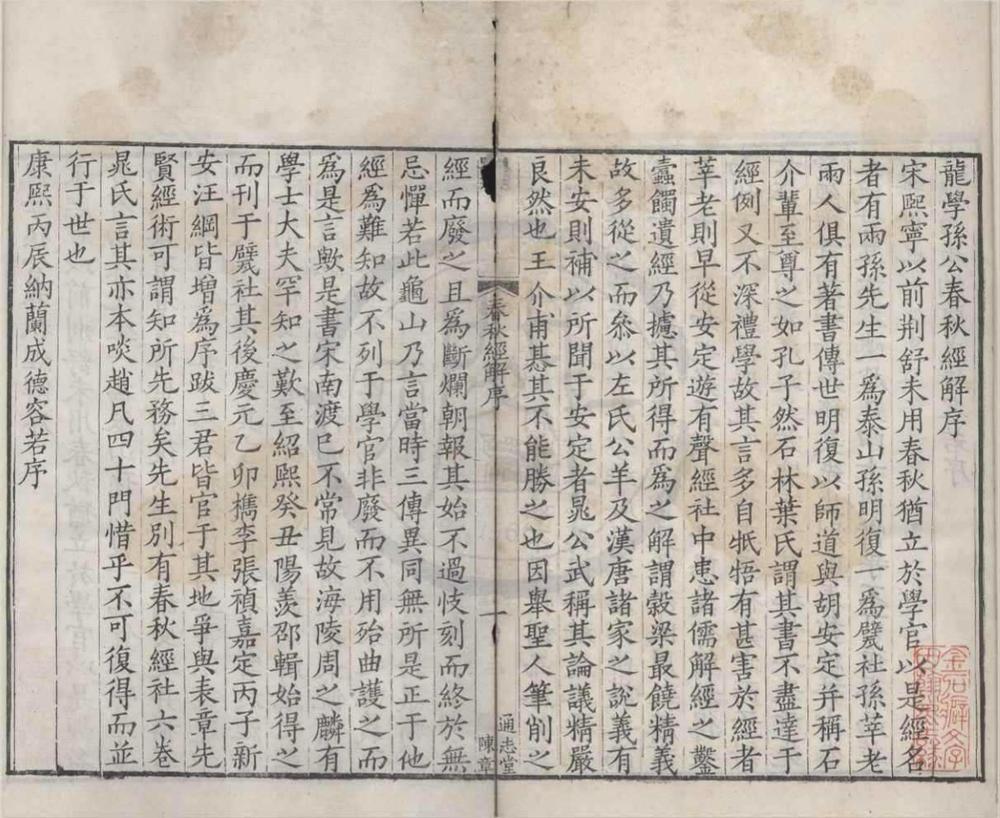 龍學孫公春秋經解序
宋熙寧以前荆舒未用春秋猶立於學官以是經名
者有兩孫先生一爲泰山孫明復一爲甓社孫莘老
兩人俱有著書傳世明復以師道與胡安定并稱石
介輩至尊之如孔子然石林葉氏謂其書不盡達于
經例又不深禮學故其言多自牴牾有甚害於經者
莘老則早從安定遊有聲經社中患諸儒解經之鑿
蠹蠲遺經乃攄其所得而爲之解謂穀梁最饒精義
故多從之而叅以左氏公羊及漢唐諸家之說義有
未安則補以所聞于安定者晁公武稱其論議精嚴
良然也王介甫惎其不能勝之也因舉聖人筆削之
春秋經解序
一
通志堂
陳章
經而廢之且爲斷爛朝報其始不過忮刻而終於無
忌憚若此龜山乃言當時三傳異同無所是正于他
經爲難知故不列于學官非廢而不用殆曲護之而
爲是言歟是書宋南渡已不常見故海陵周之麟有
學士大夫罕知之歎至紹熙癸丑陽羨邵輯始得之
而刊于甓社其後慶元乙卯檇李張禎嘉定丙子新
安汪綱皆增爲序跋三君皆官于其地爭與表章先
賢經術可謂知所先務矣先生別有春秋經社六卷
晁氏言其亦本啖趙凡四十門惜乎不可復得而並
行于世也
康熙丙辰納蘭成德容若序